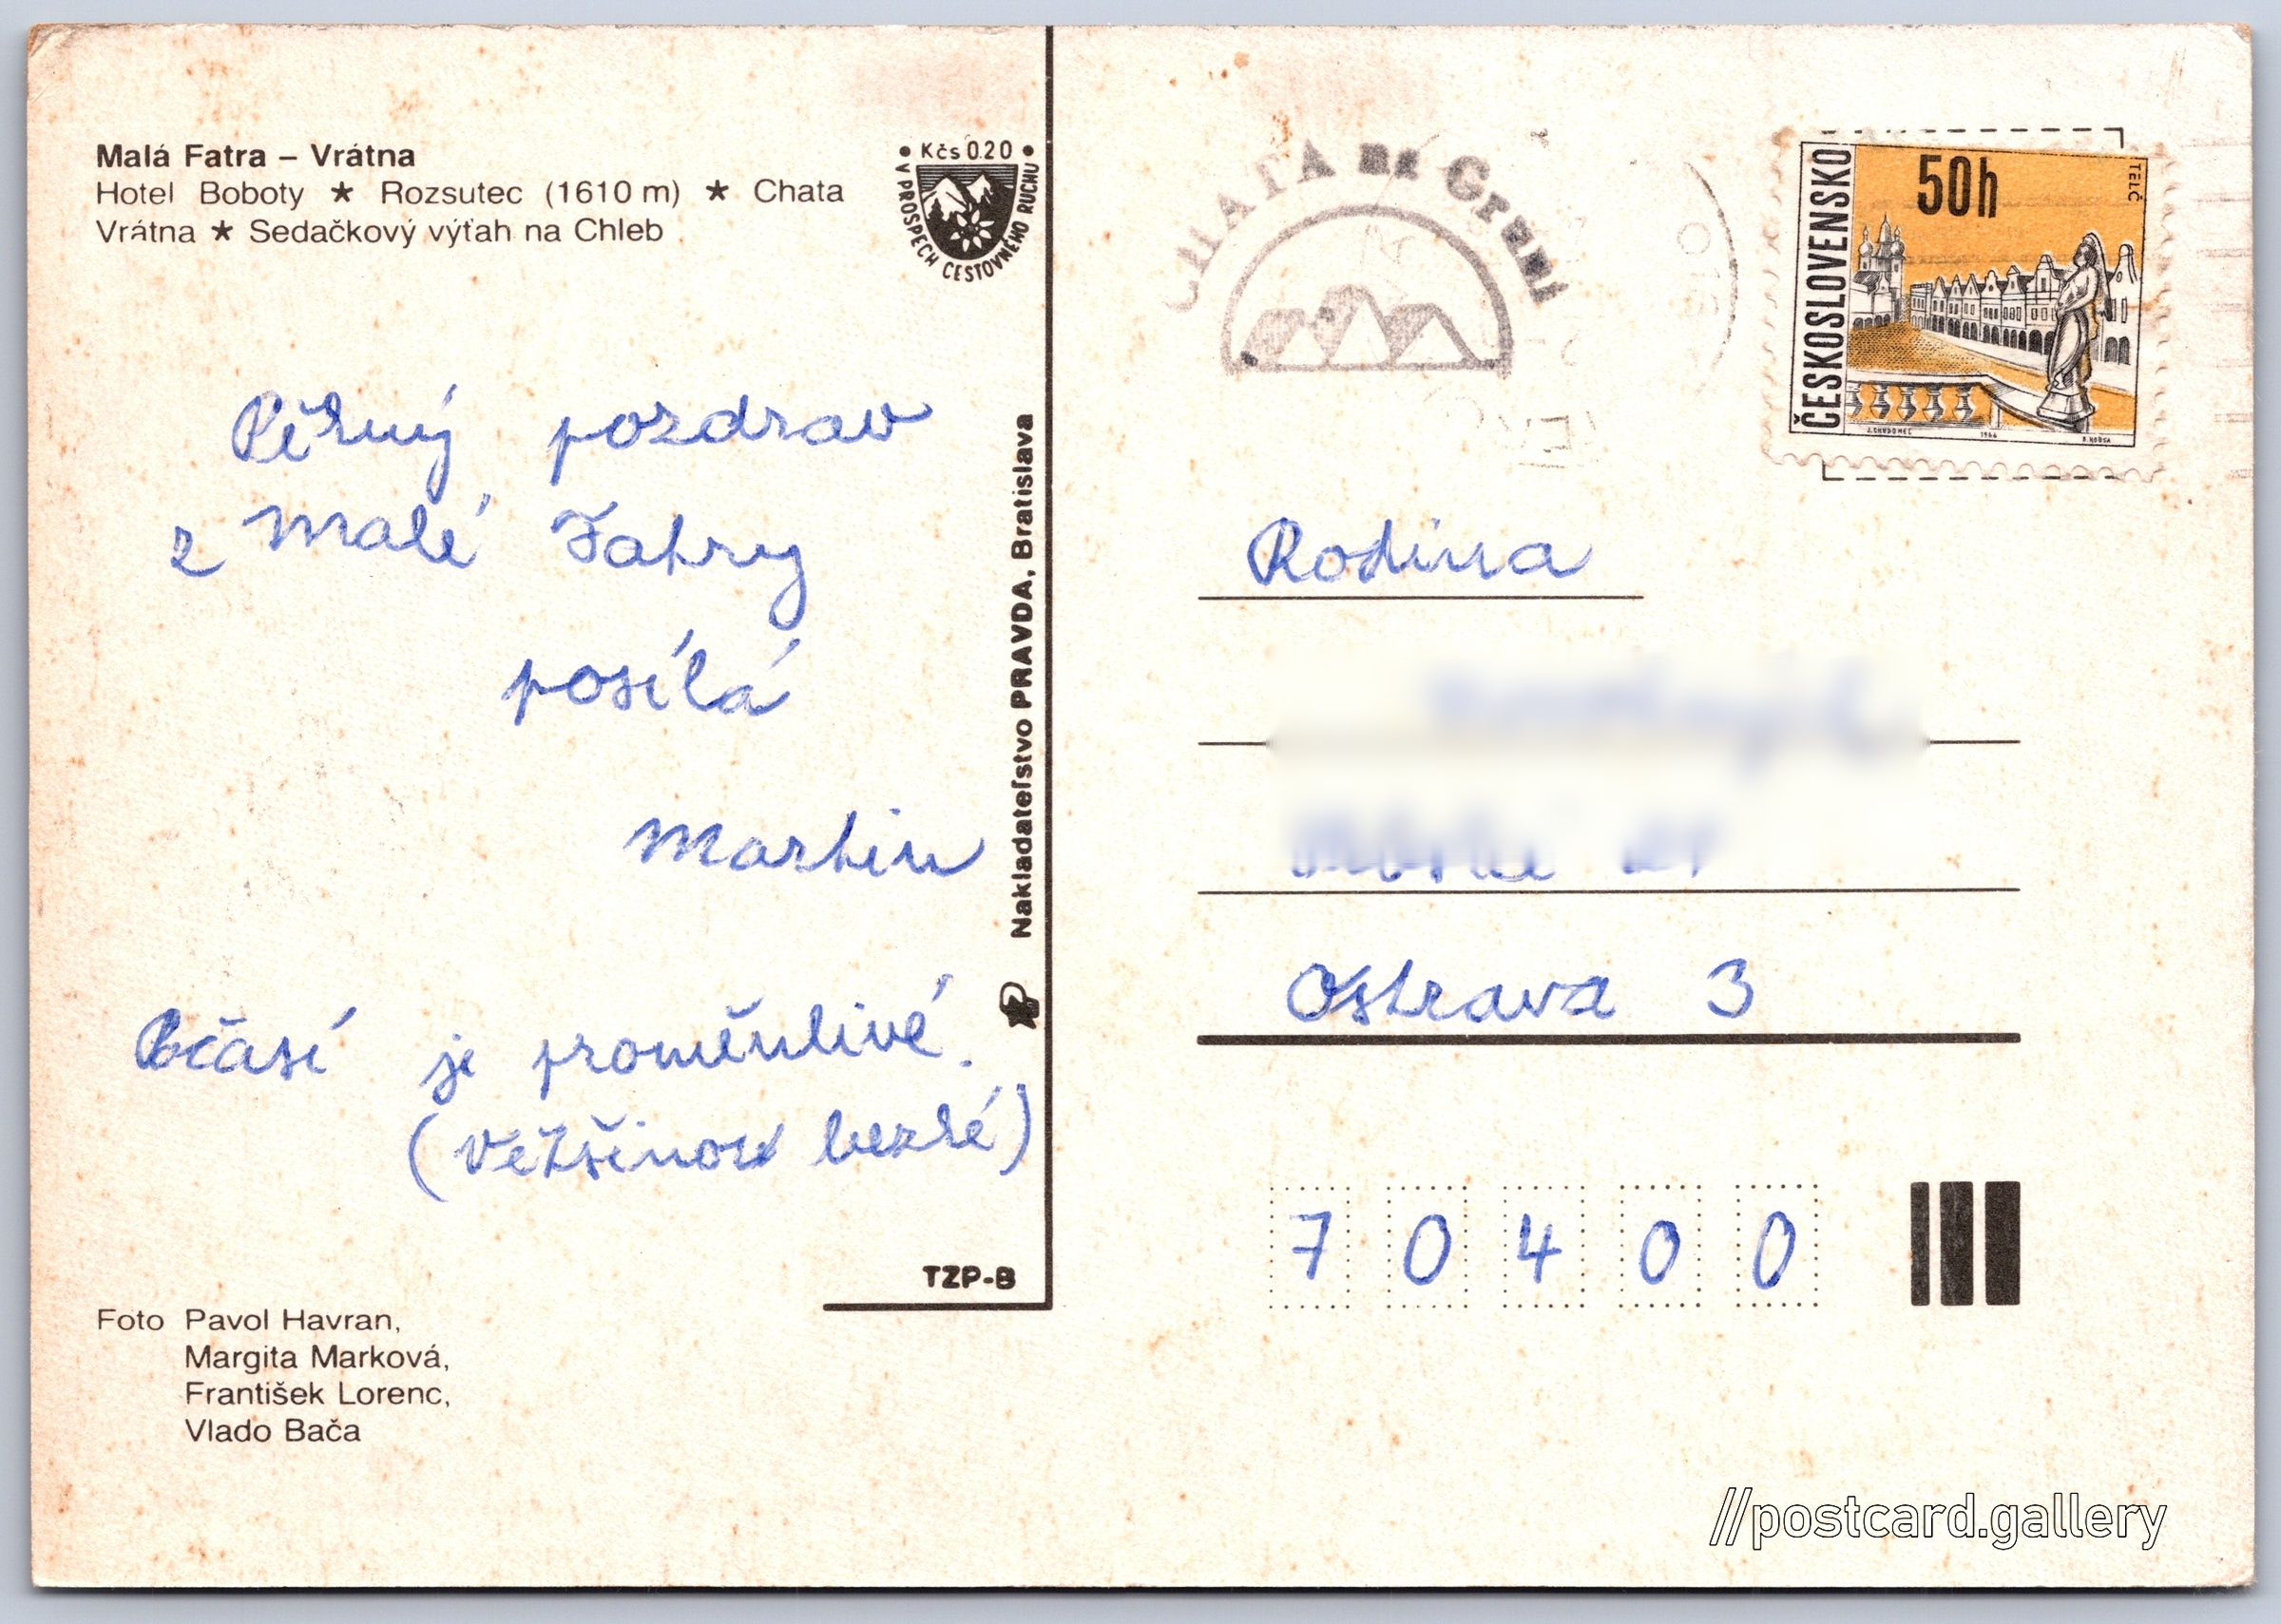 Malá Fatra – Vrátna
Hotel Boboty ★ Rozsutec (1610 m) ★ Chata
Vrátna ★ Sedačkový výťah na Chleb
• Kčs 0.20 •
V PROSPECH CESTOVNÉHO RUCHU
Pěkný pozdrav
z Malé Fatry
posílá
Martin
Počasí je proměnlivé.
(většinou hezké)
Nakladateľstvo PRAVDA, Bratislava
TZP-B
Foto Pavol Havran,
Margita Marková,
František Lorenc,
Vlado Bača
CHATA na Grúni
ČESKOSLOVENSKO
50h
TELČ
1966
Rodina
Ostrava 3
7 0 4 0 0
//postcard.gallery